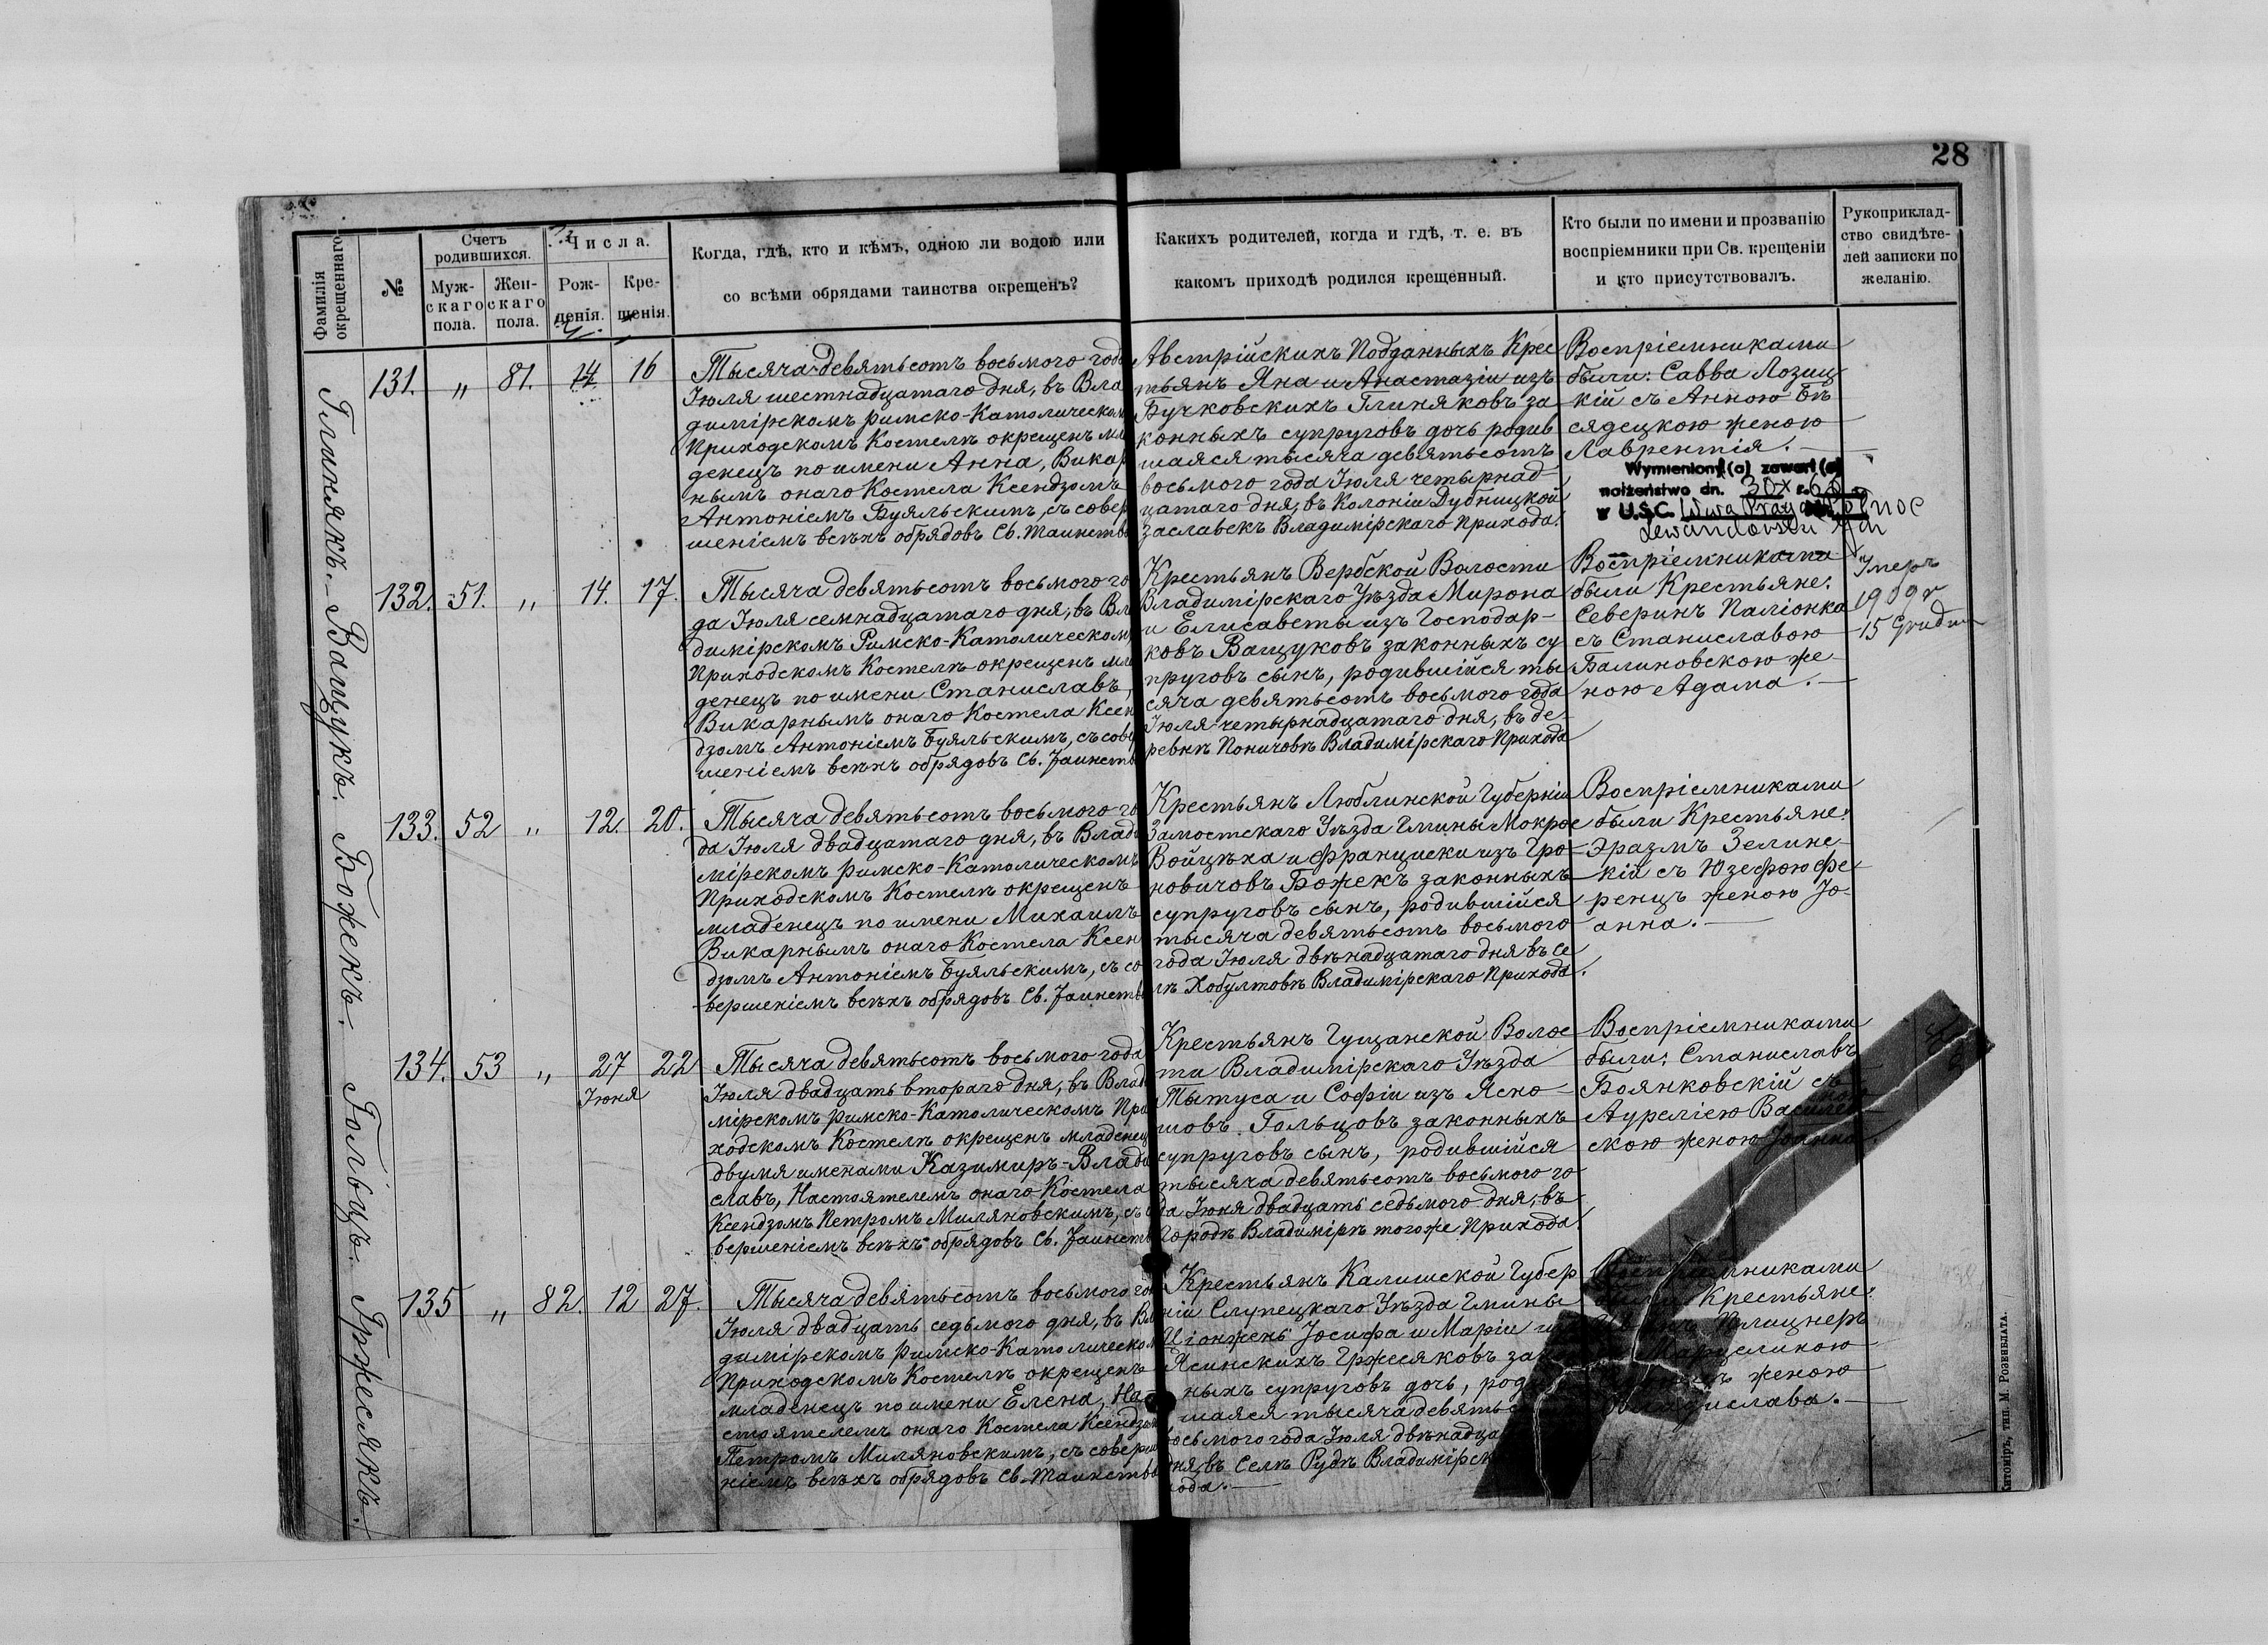 28
Фамилія окрещеннаго
№
Счетъ родившихся.
Муж-скаго пола.
Жен-скаго пола.
Числа.
Рож-денія.
Кре-щенія.
Когда, гдѣ, кто и кѣмъ, одною ли водою или
со всѣми обрядами таинства окрещенъ?
Какихъ родителей, когда и гдѣ, т. е. въ
какомъ приходѣ родился крещенный.
Кто были по имени и прозванію
воспріемники при Св. крещеніи
и кто присутствовалъ.
Рукоприклад-
ство свидѣте-
лей записки по
желанію.
Глинякъ.
131. " 81. 14 16
Тысяча девятьсотъ восьмого года
Іюля шестнадцатаго дня, въ Вла
димірскомъ римско-Католическомъ
Приходскомъ Костелѣ окрещенъ мла
денецъ по имени Анна, Викар
нымъ онаго Костела Ксендзомъ
Антоніемъ Буяльскимъ, съ совер
шеніемъ всѣхъ обрядовъ Св. Таинства
Австрійскихъ Подданныхъ Крес
тьянъ Яна и Анастазіи изъ
Бучковскихъ Глиняковъ за
конныхъ супруговъ дочь родив
шаяся тысяча девятьсотъ
восьмого года Іюля четырнад-
цатаго дня, въ Колоніи Дубницкой
Заславекъ Владимірскаго прихода.
Воспріемниками
были: Савва Лозиц
кій съ Анною Бѣ
сядецкою женою
Лаврентія.
Wymieniony (a) zawarł (a)
małżeństwo dn. 30 X r. 60
w U.S.C. Wwa Praga Płnoc
Lewandowski Jan
Ващукъ.
132. 51. " 14. 17.
Тысяча девятьсотъ восьмого го
да Іюля семнадцатаго дня, въ Вла
димірскомъ Римско-Католическомъ
Приходскомъ Костелѣ окрещенъ мла
денецъ по имени Станиславъ,
Викарнымъ онаго Костела Ксен
дзомъ Антоніемъ Буяльскимъ, съ совер
шеніемъ всѣхъ обрядовъ Св. Таинства
Крестьянъ Вербской Волости
Владимірскаго Уѣзда Мирона
и Елисаветы изъ Господар-
ковъ Ващуковъ законныхъ су
пруговъ сынъ, родившійся ты
сяча девятьсотъ восьмого года
Іюля четырнадцатаго дня, въ де-
ревнѣ Поничовѣ Владимірскаго Прихода
Воспріемниками
были Крестьяне:
Северинъ Паліонка
съ Станиславою
Балиновскою же-
ною Адама.
Умеръ
1909 r
15 Grudn
Божекъ.
133. 52 " 12. 20.
Тысяча девятьсотъ восьмого го
да Іюля двадцатаго дня, въ Влади
мірскомъ римско-Католическомъ
Приходскомъ Костелѣ окрещенъ
младенецъ по имени Михаилъ
Викарнымъ онаго Костела Ксен
дзомъ Антоніемъ Буяльскимъ, съ со
вершеніемъ всѣхъ обрядовъ Св. Таинства
Крестьянъ Люблинской Губерніи
Замостскаго Уѣзда Гмины Мокрое
Войцѣха и Франциски изъ Гро-
новичовъ Божекъ законныхъ
супруговъ сынъ, родившійся
тысяча девятьсотъ восьмого
года Іюля двѣнадцатаго дня въ се
лѣ Хобултовѣ Владимірскаго Прихода.
Воспріемниками
были Крестьяне:
Эразмъ Зелинс-
кій съ Юзефою Фе-
ренцъ женою Іо-
анна.
Гольцъ.
134. 53 " 27 Іюня 22
Тысяча девятьсотъ восьмого года
Іюля двадцать второго дня, въ Влади
мірскомъ римско-Католическомъ При
ходскомъ Костелѣ окрещенъ младенецъ
двумя именами Казимиръ-Влади
славъ, Настоятелемъ онаго Костела
Ксендзомъ Петромъ Миляновскимъ, съ со
вершеніемъ всѣхъ обрядовъ Св. Таинства
Крестьянъ Гущанской Волос
ти Владимірскаго Уѣзда
Тытуса и Софіи изъ Ясно-
шовъ Гольцовъ законныхъ
супруговъ сынъ, родившійся
тысяча девятьсотъ восьмого го
да Іюня двадцать седьмого дня, въ
Городѣ Владимірѣ тогоже Прихода.
Воспріемниками
были: Станиславъ
Боянковскій съ
Ауреліею
скою женою Іоанна.
Гржесякъ.
135 " 82. 12 27.
Тысяча девятьсотъ восьмого года
Іюля двадцать седьмого дня, въ Вла
димірскомъ римско-Католическомъ
Приходскомъ Костелѣ окрещенъ
младенецъ по имени Елена, На-
стоятелемъ онаго Костела Ксендзомъ
Петромъ Миляновскимъ, съ соверше
ніемъ всѣхъ обрядовъ Св. Таинства
Крестьянъ Калишской Губер
ніи Слупецкаго Уѣзда Гмины
Ціонжень Іосифа и Маріи
Ясинскихъ Гржесяковъ за
ныхъ супруговъ дочь, род
шаяся тысяча девятьс
восьмого года Іюля двѣнадца
дня, въ Селѣ Рудѣ Владимірск
хода.
Воспріемниками
были Крестьяне:
женою
Владислава.
Житоміръ, тип. М. Розенблата.